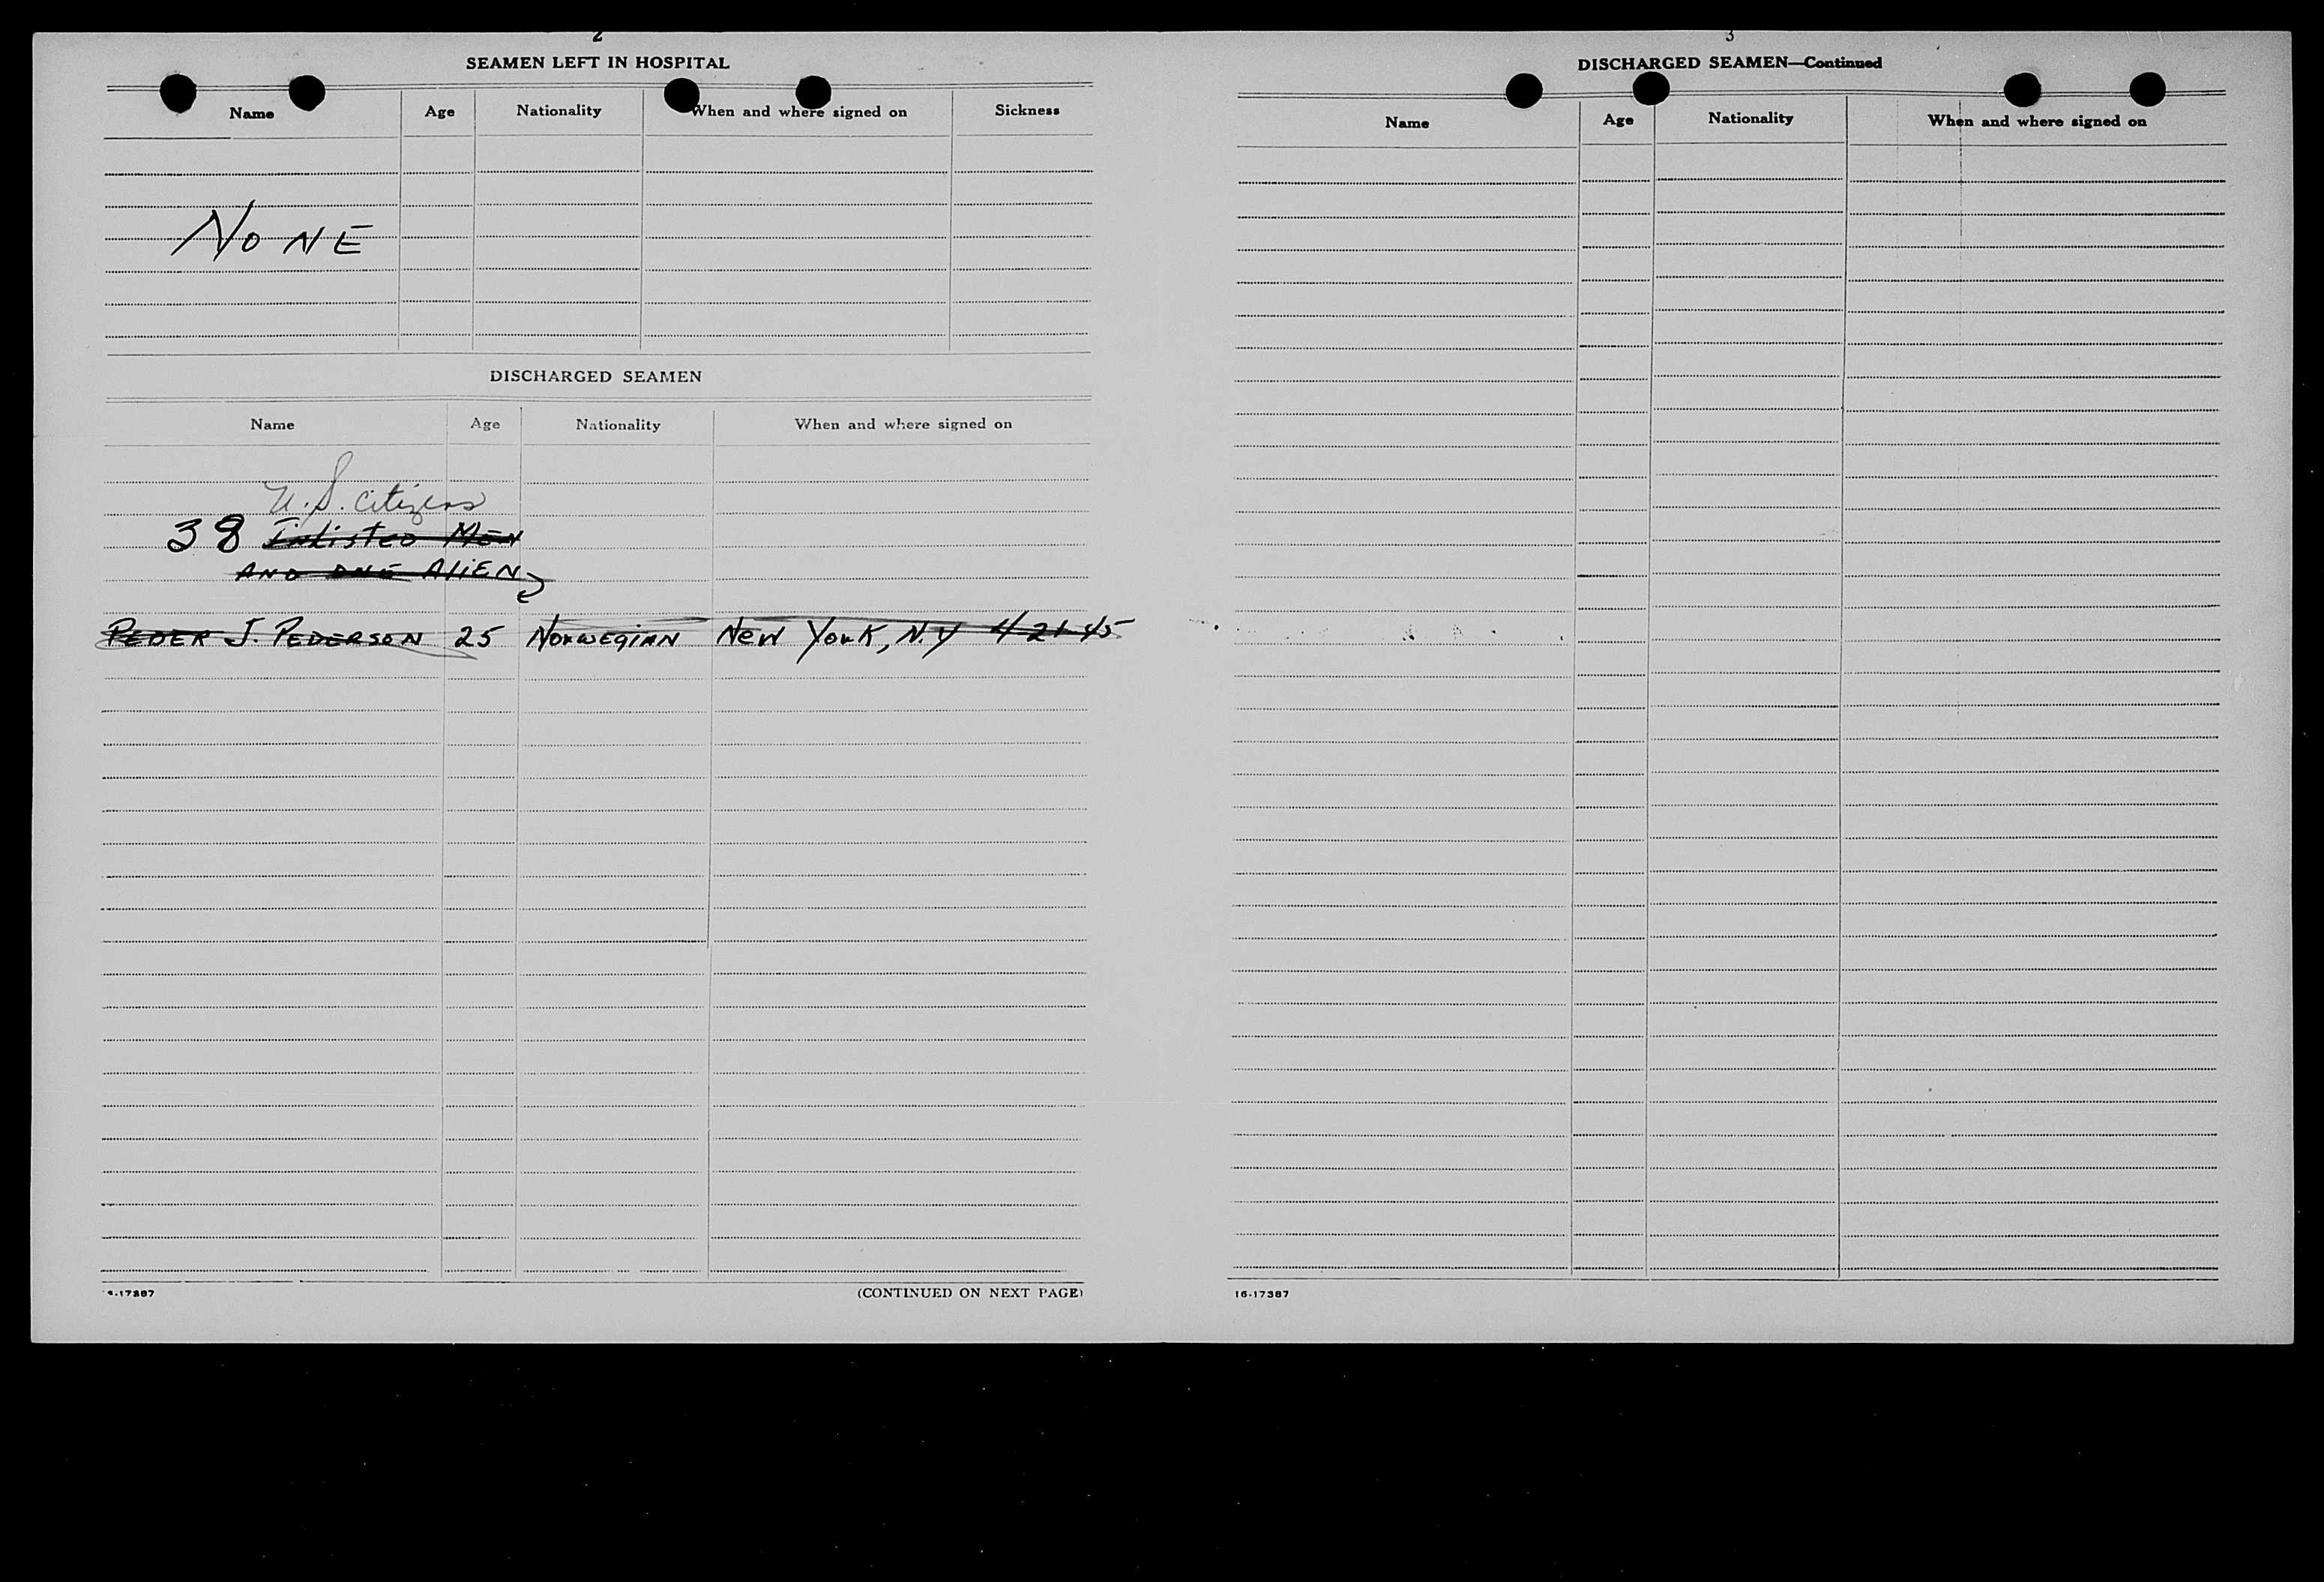 2
SEAMEN LEFT IN HOSPITAL
Name Age Nationality When and where signed on Sickness
NONE
DISCHARGED SEAMEN
Name Age Nationality When and where signed on
U.S. citizens
38 Enlisted Men
AND ONE ALIEN
PEDER J. PEDERSON 25 NORWEGIAN NEW YORK, N.Y 4-21-45
(CONTINUED ON NEXT PAGE)
3
DISCHARGED SEAMEN—Continued
Name Age Nationality When and where signed on
16-17387